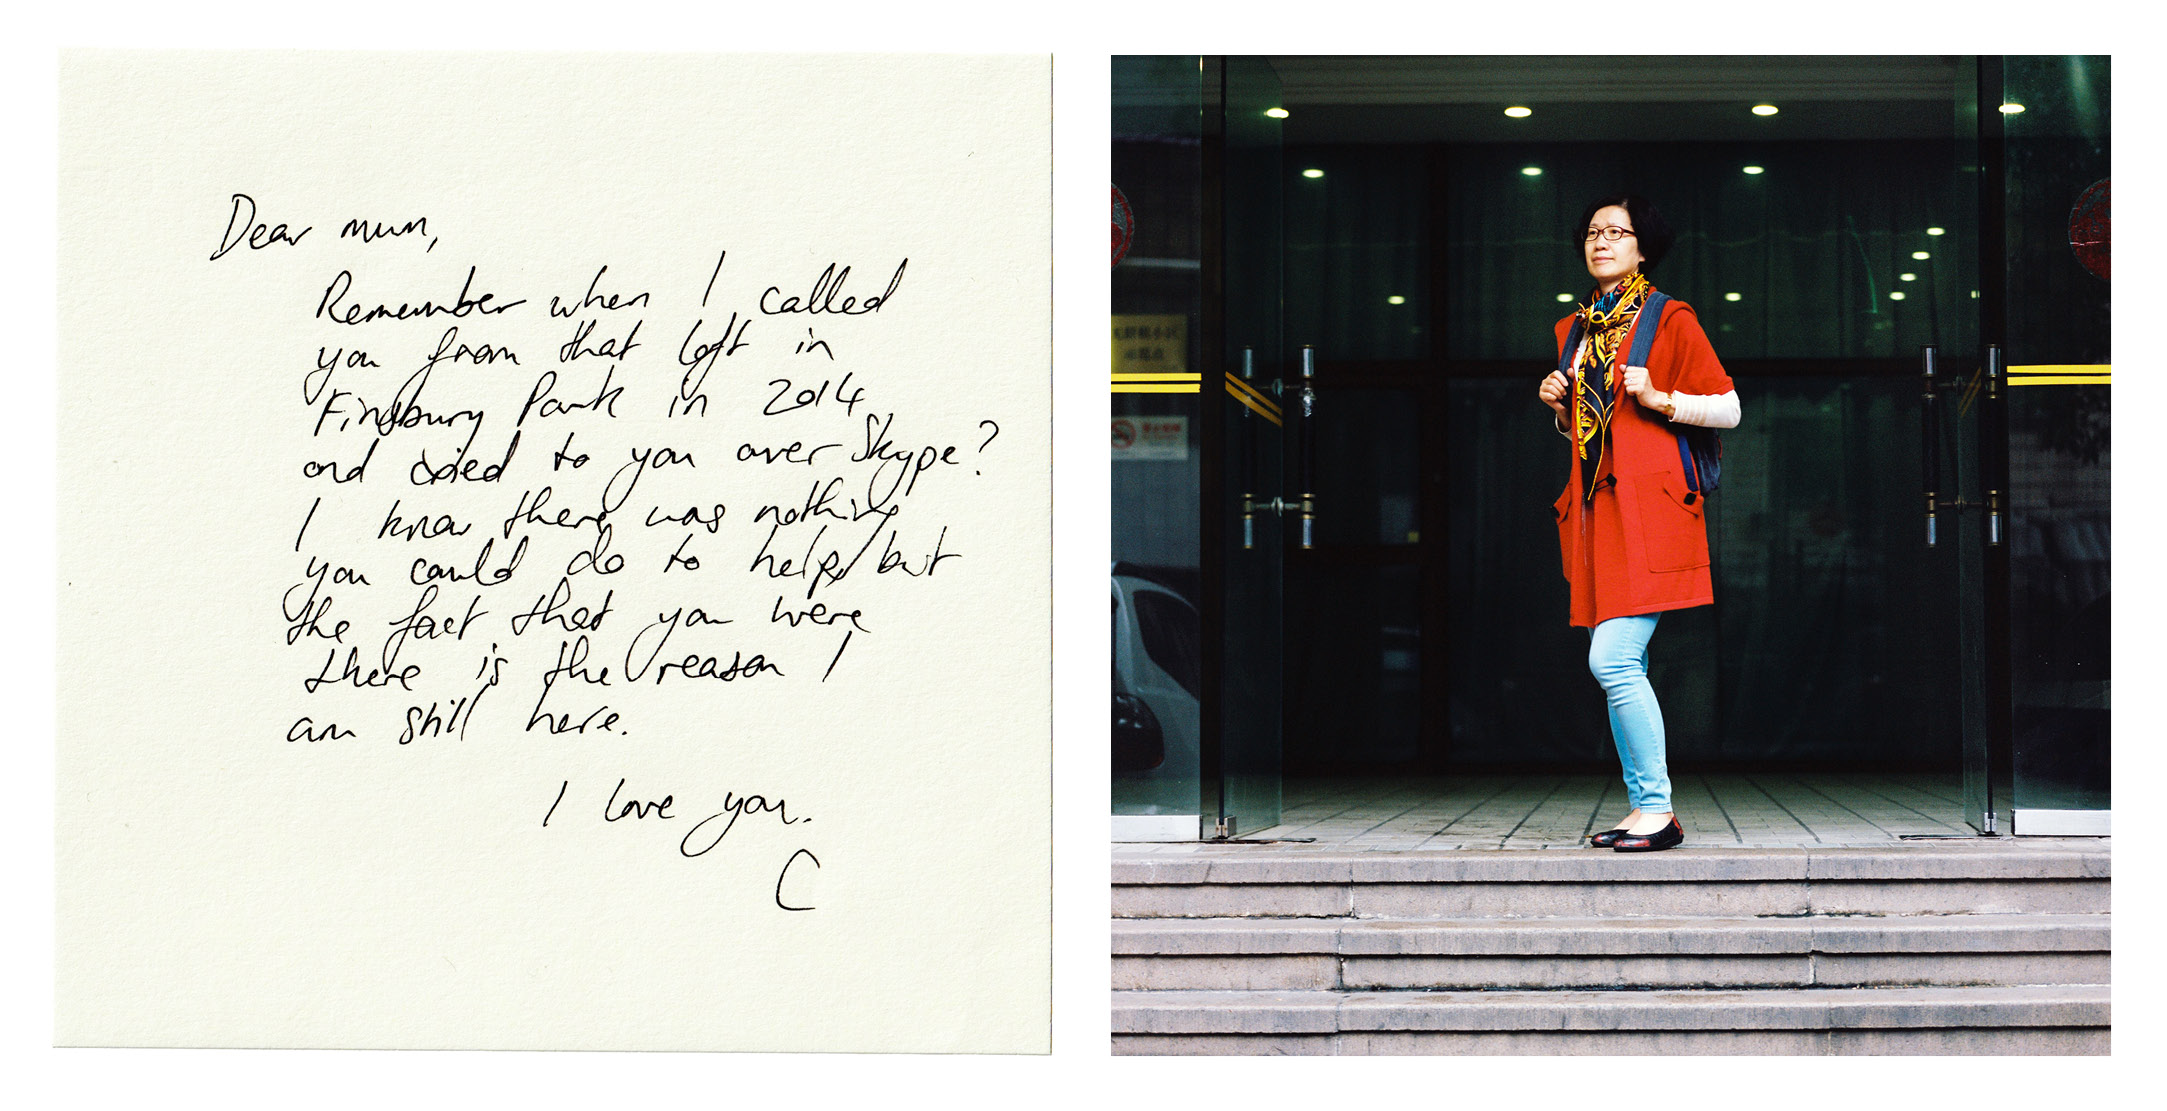 Dear mum,
Remember when I called
you from that loft in
Finsbury Park in 2014
and cried to you over Skype?
I know there was nothing
you could do to help, but
the fact that you were
there is the reason I
am still here.
I love you.
C